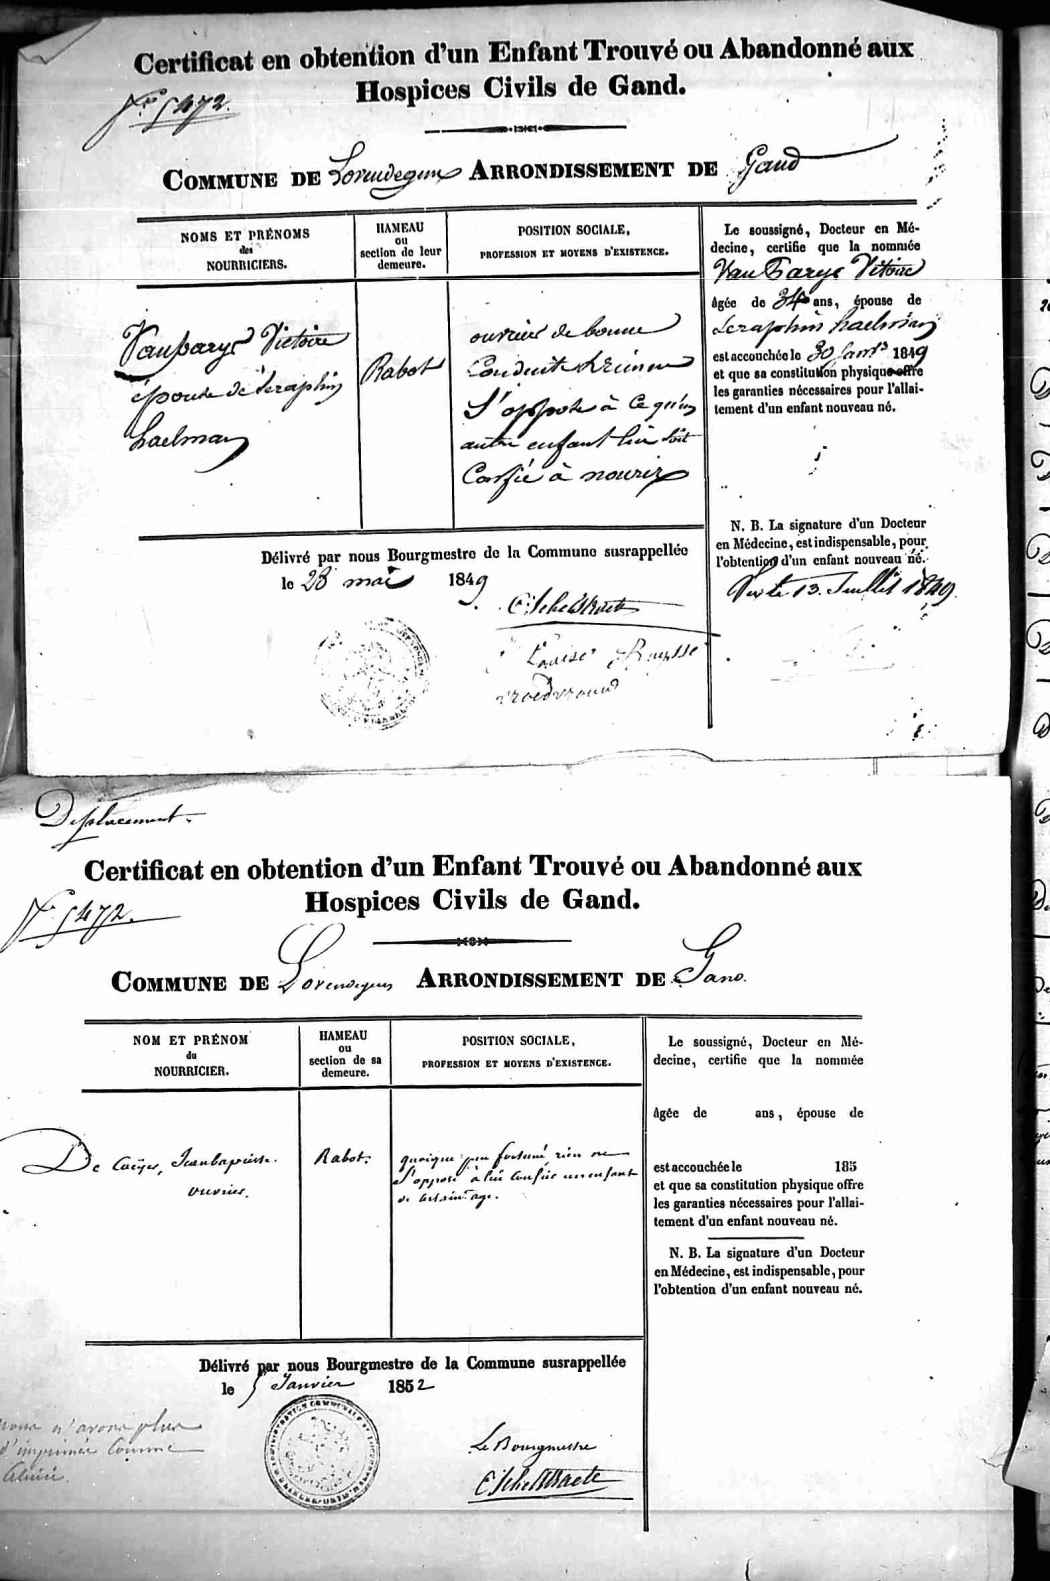 Certificat en obtention d'un Enfant Trouvé ou Abandonné aux
Hospices Civils de Gand.
No 5472.
COMMUNE DE Lovendegem ARRONDISSEMENT DE Gand
NOMS ET PRÉNOMS
des
NOURRICIERS.
HAMEAU
ou
section de leur
demeure.
POSITION SOCIALE,
PROFESSION ET MOYENS D'EXISTENCE.
Vanparys Victoire
épouse de Seraphin
Haelman
Rabot
ouvrier de bonne
conduite
S'oppose à ce qu'un
autre enfant lui soit
Confié à nourir
Le soussigné, Docteur en Mé-
decine, certifie que la nommée
Van Parys Vitoire
âgée de 34 ans, épouse de
Seraphin Haelman
est accouchée le 30 Janvr 1849
et que sa constitution physique offre
les garanties nécessaires pour l'allai-
tement d'un enfant nouveau né.
N. B. La signature d'un Docteur
en Médecine, est indispensable, pour
l'obtention d'un enfant nouveau né.
13. Juillet 1849.
Délivré par nous Bourgmestre de la Commune susrappellée
le 23 mai 1849.
C. Schelstraete
Louise
vroedvrouw
Déplacement.
Certificat en obtention d'un Enfant Trouvé ou Abandonné aux
Hospices Civils de Gand.
No 5472.
COMMUNE DE Lovendegem ARRONDISSEMENT DE Gand.
NOM ET PRÉNOM
du
NOURRICIER.
HAMEAU
ou
section de sa
demeure.
POSITION SOCIALE,
PROFESSION ET MOYENS D'EXISTENCE.
De Cuÿper, Jeanbaptiste.
ouvrier.
Rabot.
quoique peu fortuné, rien ne
s'oppose à lui confier un enfant
de certain age.
Le soussigné, Docteur en Mé-
decine, certifie que la nommée
âgée de ans, épouse de
est accouchée le 185
et que sa constitution physique offre
les garanties nécessaires pour l'allai-
tement d'un enfant nouveau né.
N. B. La signature d'un Docteur
en Médecine, est indispensable, pour
l'obtention d'un enfant nouveau né.
Délivré par nous Bourgmestre de la Commune susrappellée
le 5 Janvier 1852
nous n'avons plus
d'imprimés comme
Le Bourgmestre
C. Schelstraete